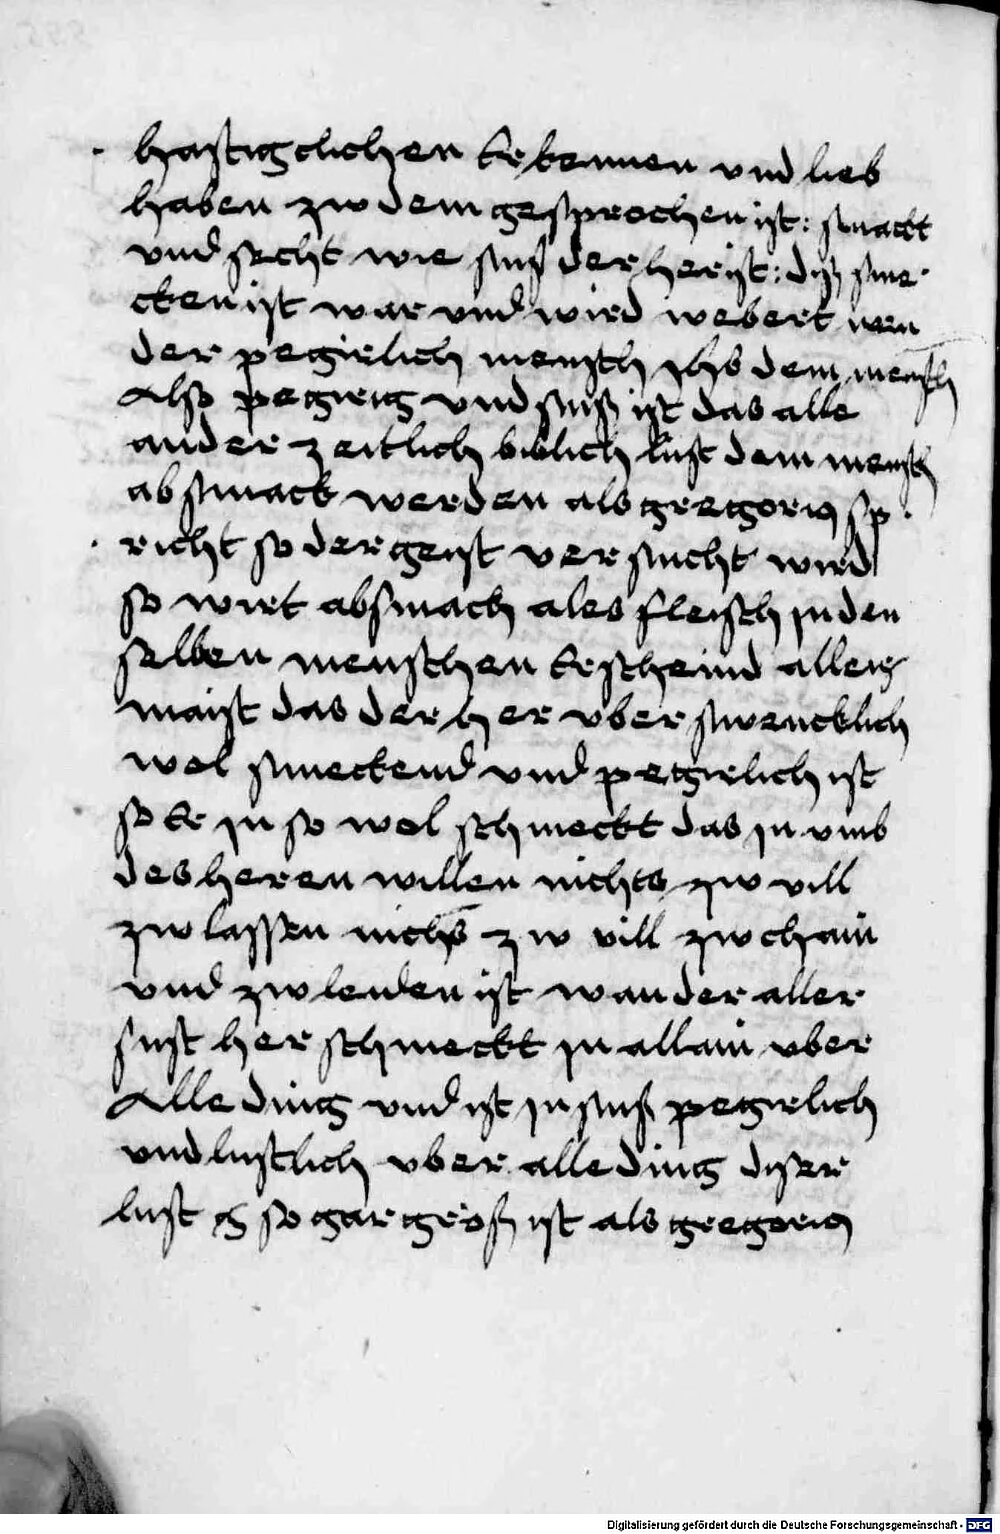 hafftigclichen Erkennen vnd lieb
haben zw dem gesprochen ist: smackt
vnd secht wie suß der her ist: diß sme
cken ist war vnd wird webert wen
der pegirlich mensch ihs dem mensch
Also pegirig vnd suß ist das alle
ander zeitlich liblich lust dem mensch
absmack werden als gregorius sp
richt so der geist versucht wird
so wirt absmack ales fleisch in den
selben menschen Erscheind aller
maist das der her vberswencklich
wol smeckend vnd pegirlich ist
so Er in so wol schmeckt das in vmb
des heren willen nichts zw vill
zw lassen nichs zw vill zw chain
vnd zw leiden ist wan der aller
sust her schmeckt in allain vber
Alle ding vnd ist in suß pegirlich
vnd lustlich vber alle ding diser
lust so gar groß ist als gregorius
Digitalisierung gefördert durch die Deutsche Forschungsgemeinschaft - DFG